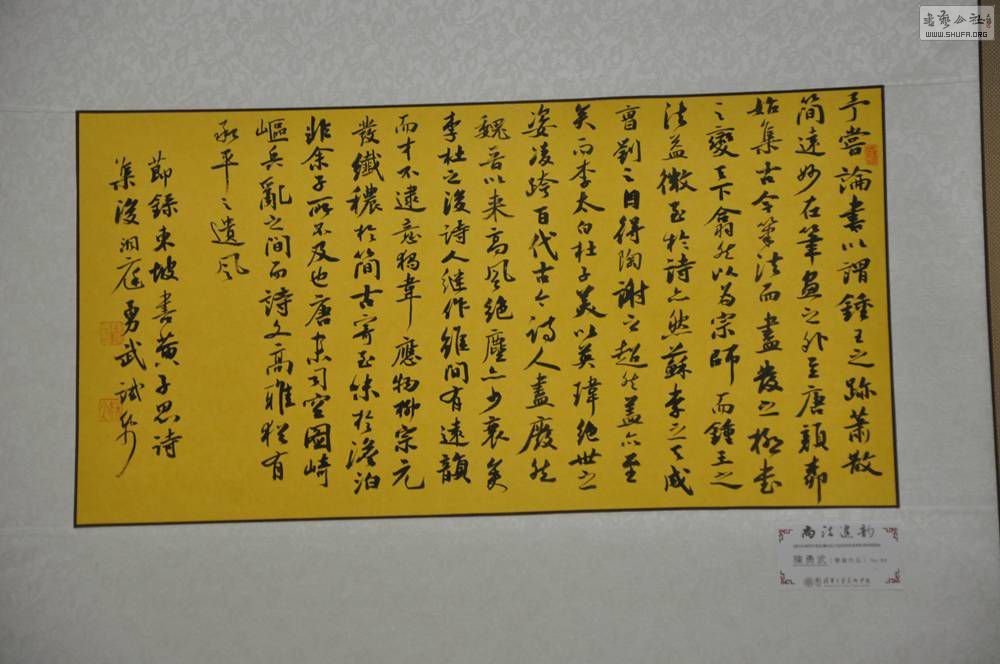 予嘗論書以謂鍾王之跡蕭散
簡遠妙在筆畫之外至唐顏柳
始集古今筆法而盡發之極書
之變天下翕然以為宗師而鍾王之
法益微至於詩亦然蘇李之天成
曹劉之自得陶謝之超然蓋亦至
矣而李太白杜子美以英瑋絕世之
姿凌跨百代古今詩人盡廢然
魏晉以來高風絕塵亦少衰矣
李杜之後詩人繼作雖間有遠韻
而才不逮意獨韋應物柳宗元
發纖穠於簡古寄至味於澹泊
非余子所不及也唐末司空圖崎
嶇兵亂之間而詩文高雅猶有
承平之遺風
節錄東坡書黃子思詩
集後洞庭勇武試筆
尚法遺韵
陳勇武
書藝公社
WWW.SHUFA.ORG